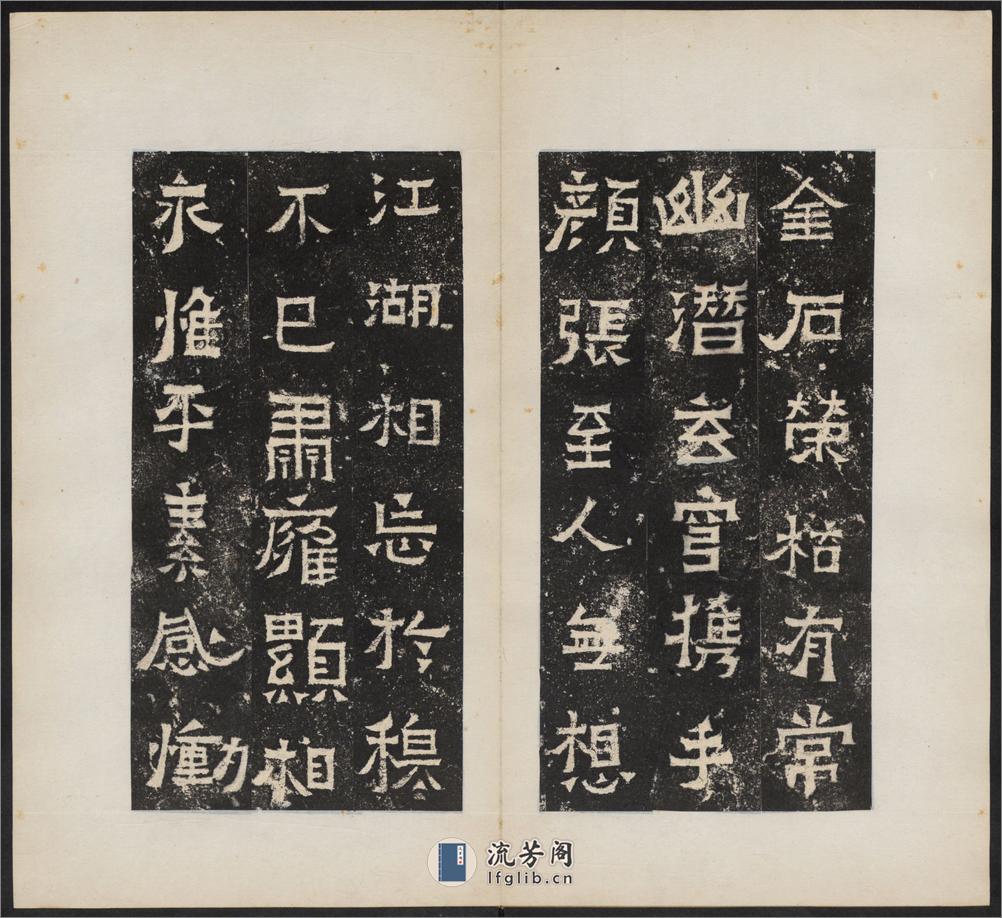 金石榮枯有常
幽潛玄穹携手
顏張至人無想
江湖相忘於穆
不已肅雍顯相
永惟平素感慟
流芳阁
lfglib.cn